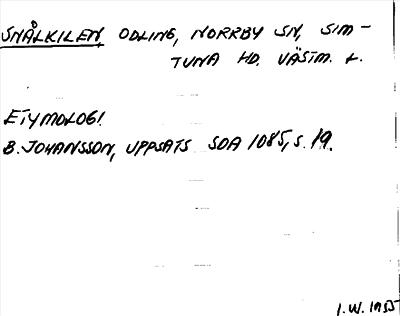 SNÅLKILEN, ODLING, NORRBY SN, SIM-
TUNA HD. VÄSTM. L.
ETYMOLOGI
B. JOHANSSON, UPPSATS SOA 1085, S. 19.
I.W. 1955